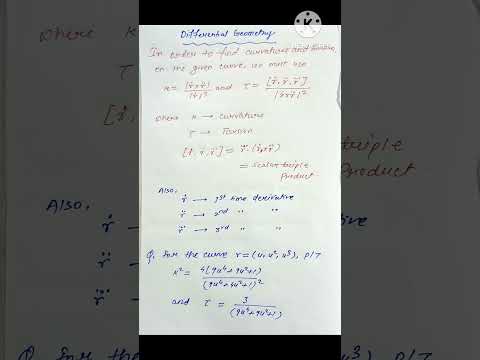 Differential Geometry
In order to find curvature and Torsion,
on the given curve, we must use
κ = |ṙ×r̈| / |ṙ|³ and τ = [ṙ, r̈, r⃛] / |ṙ×r̈|²
where κ → curvature
τ → Torsion
[ṙ, r̈, r⃛] = r⃛·(ṙ×r̈)
= scalar triple
Product
Also,
ṙ → 1st time derivative
r̈ → 2nd " "
r⃛ → 3rd " "
Q. For the curve r = (u, u², u³), P/T
κ² = 4(9u⁴+9u²+1) / (9u⁴+4u²+1)²
and τ = 3 / (9u⁴+9u²+1)
where κ
τ
[ṙ,
Also,
ṙ
r̈
r⃛
Q. For the
triple
Product
u³),